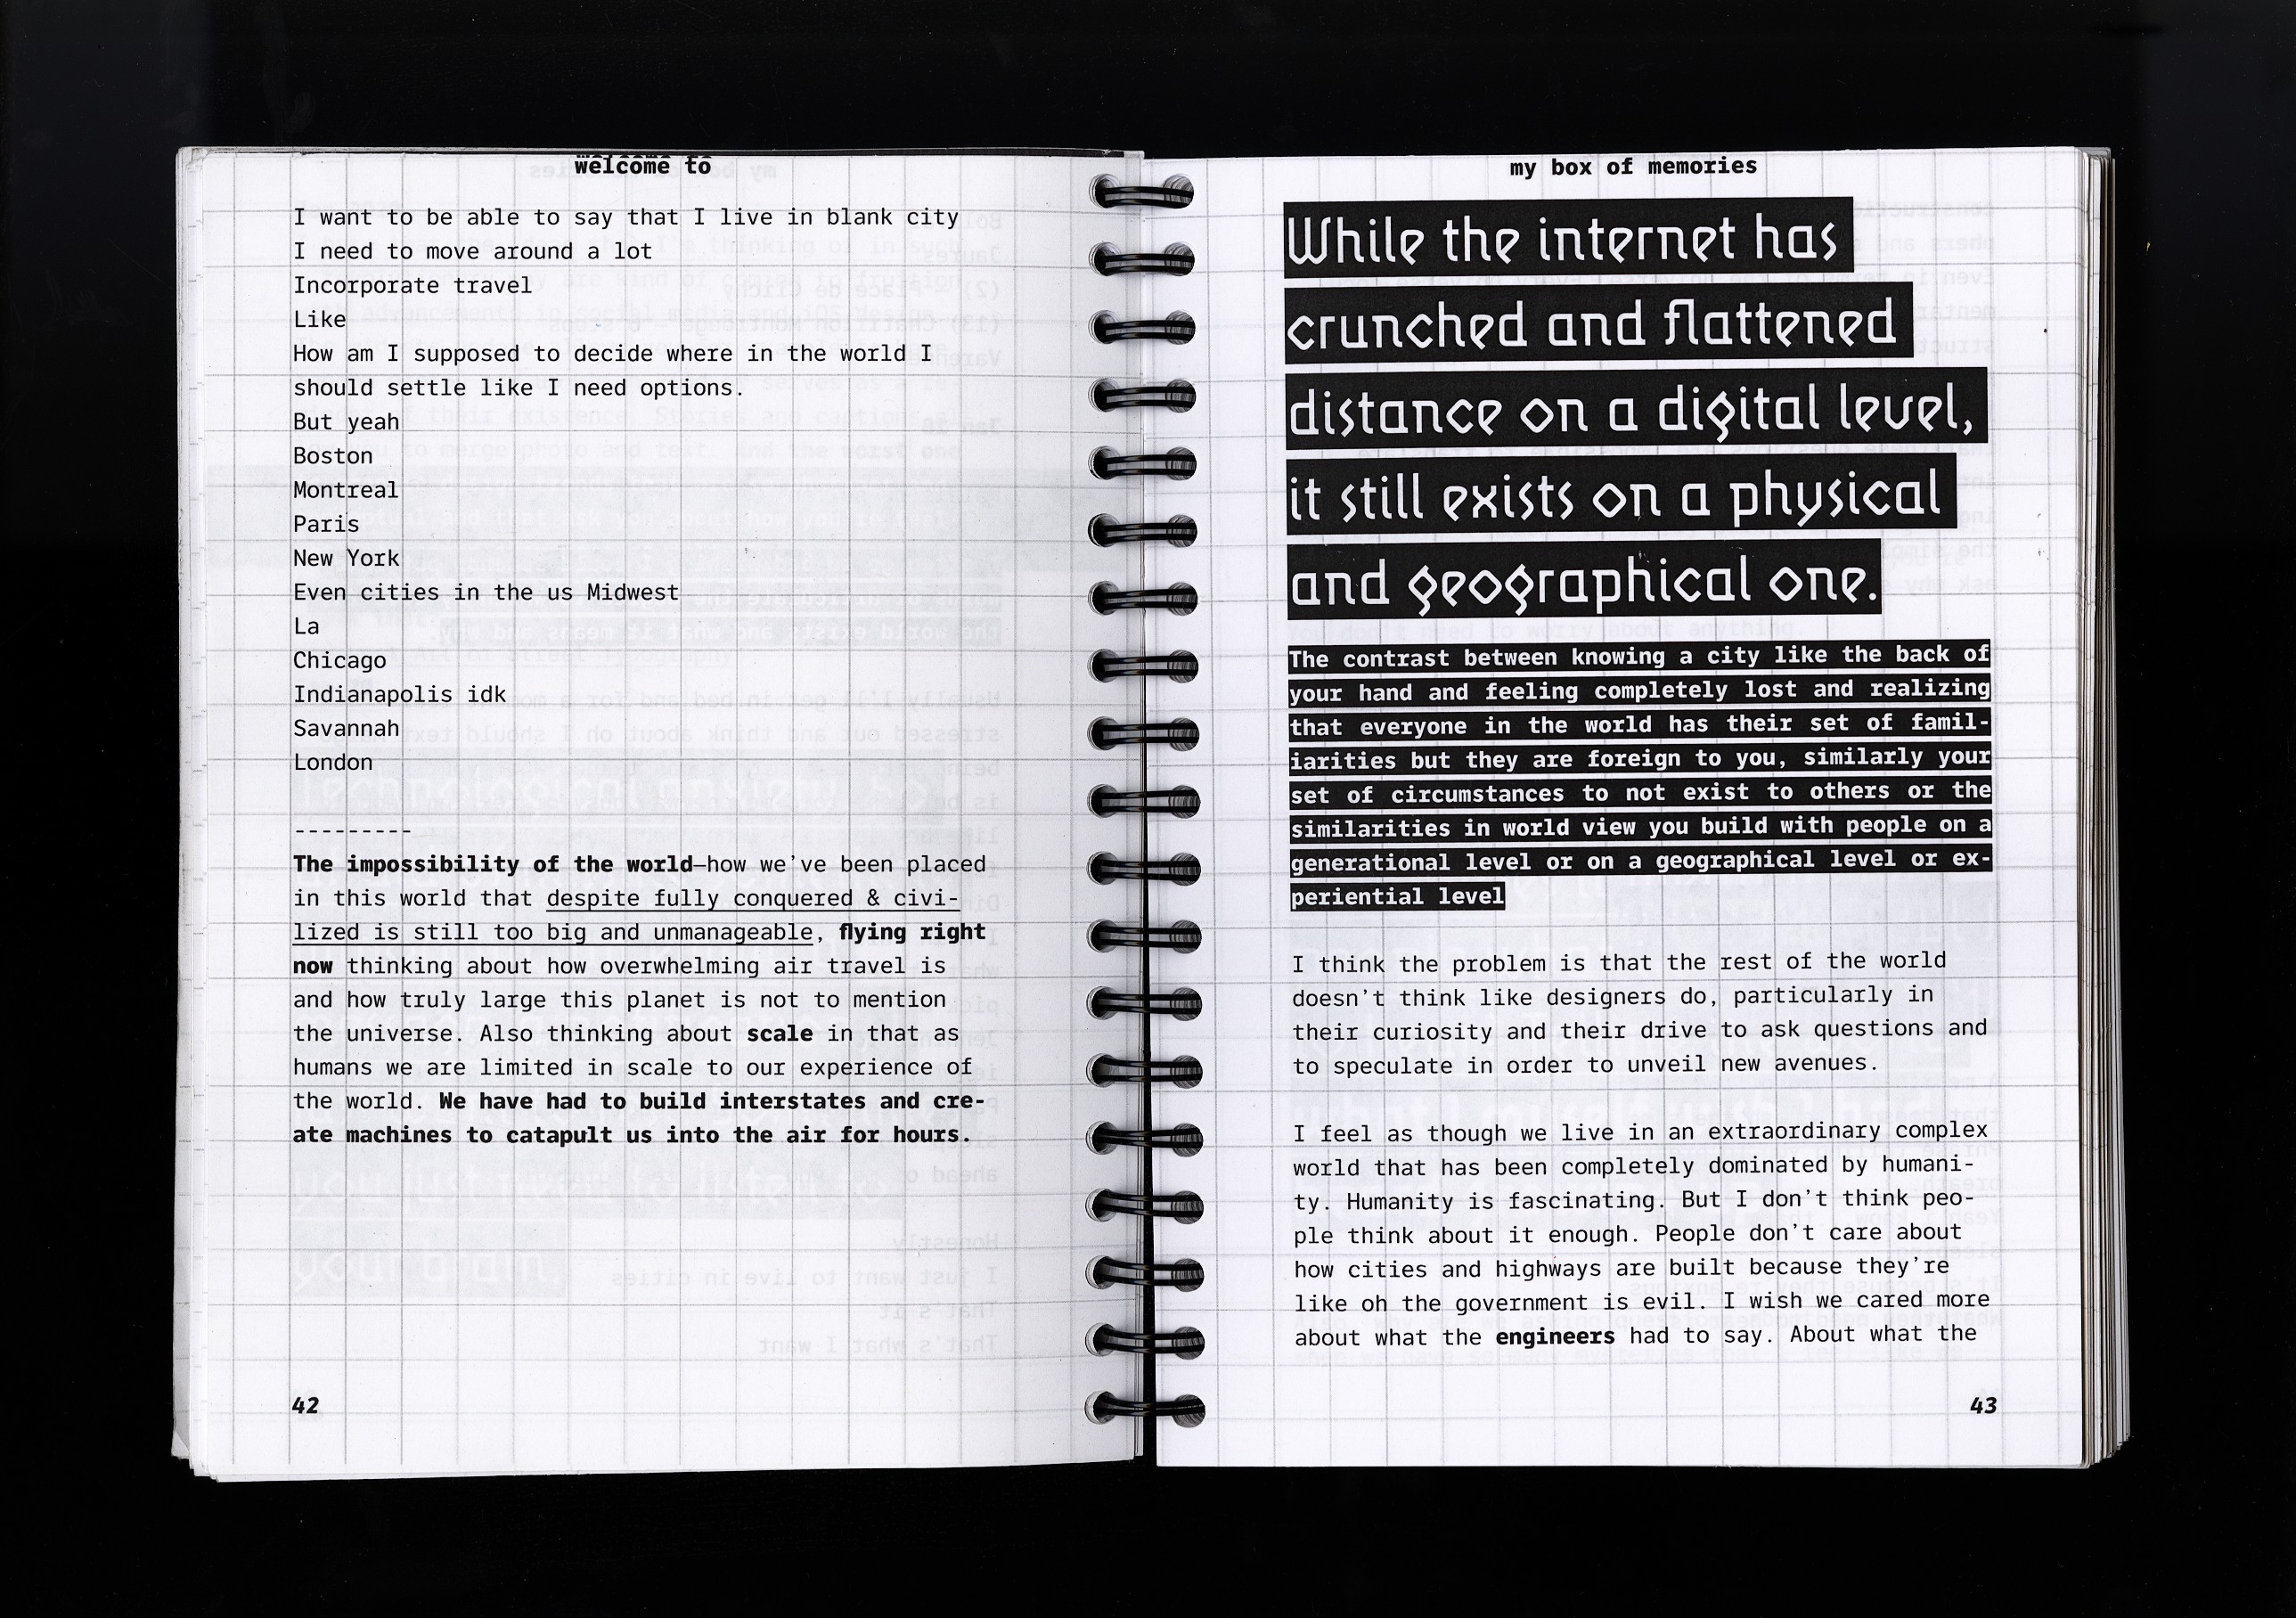 welcome to
I want to be able to say that I live in blank city
I need to move around a lot
Incorporate travel
Like
How am I supposed to decide where in the world I
should settle like I need options.
But yeah
Boston
Montreal
Paris
New York
Even cities in the us Midwest
La
Chicago
Indianapolis idk
Savannah
London
---------
The impossibility of the world—how we’ve been placed
in this world that despite fully conquered & civi-
lized is still too big and unmanageable, flying right
now thinking about how overwhelming air travel is
and how truly large this planet is not to mention
the universe. Also thinking about scale in that as
humans we are limited in scale to our experience of
the world. We have had to build interstates and cre-
ate machines to catapult us into the air for hours.
42
my box of memories
While the internet has
crunched and flattened
distance on a digital level,
it still exists on a physical
and geographical one.
The contrast between knowing a city like the back of
your hand and feeling completely lost and realizing
that everyone in the world has their set of famil-
iarities but they are foreign to you, similarly your
set of circumstances to not exist to others or the
similarities in world view you build with people on a
generational level or on a geographical level or ex-
periential level
I think the problem is that the rest of the world
doesn’t think like designers do, particularly in
their curiosity and their drive to ask questions and
to speculate in order to unveil new avenues.
I feel as though we live in an extraordinary complex
world that has been completely dominated by humani-
ty. Humanity is fascinating. But I don’t think peo-
ple think about it enough. People don’t care about
how cities and highways are built because they’re
like oh the government is evil. I wish we cared more
about what the engineers had to say. About what the
43